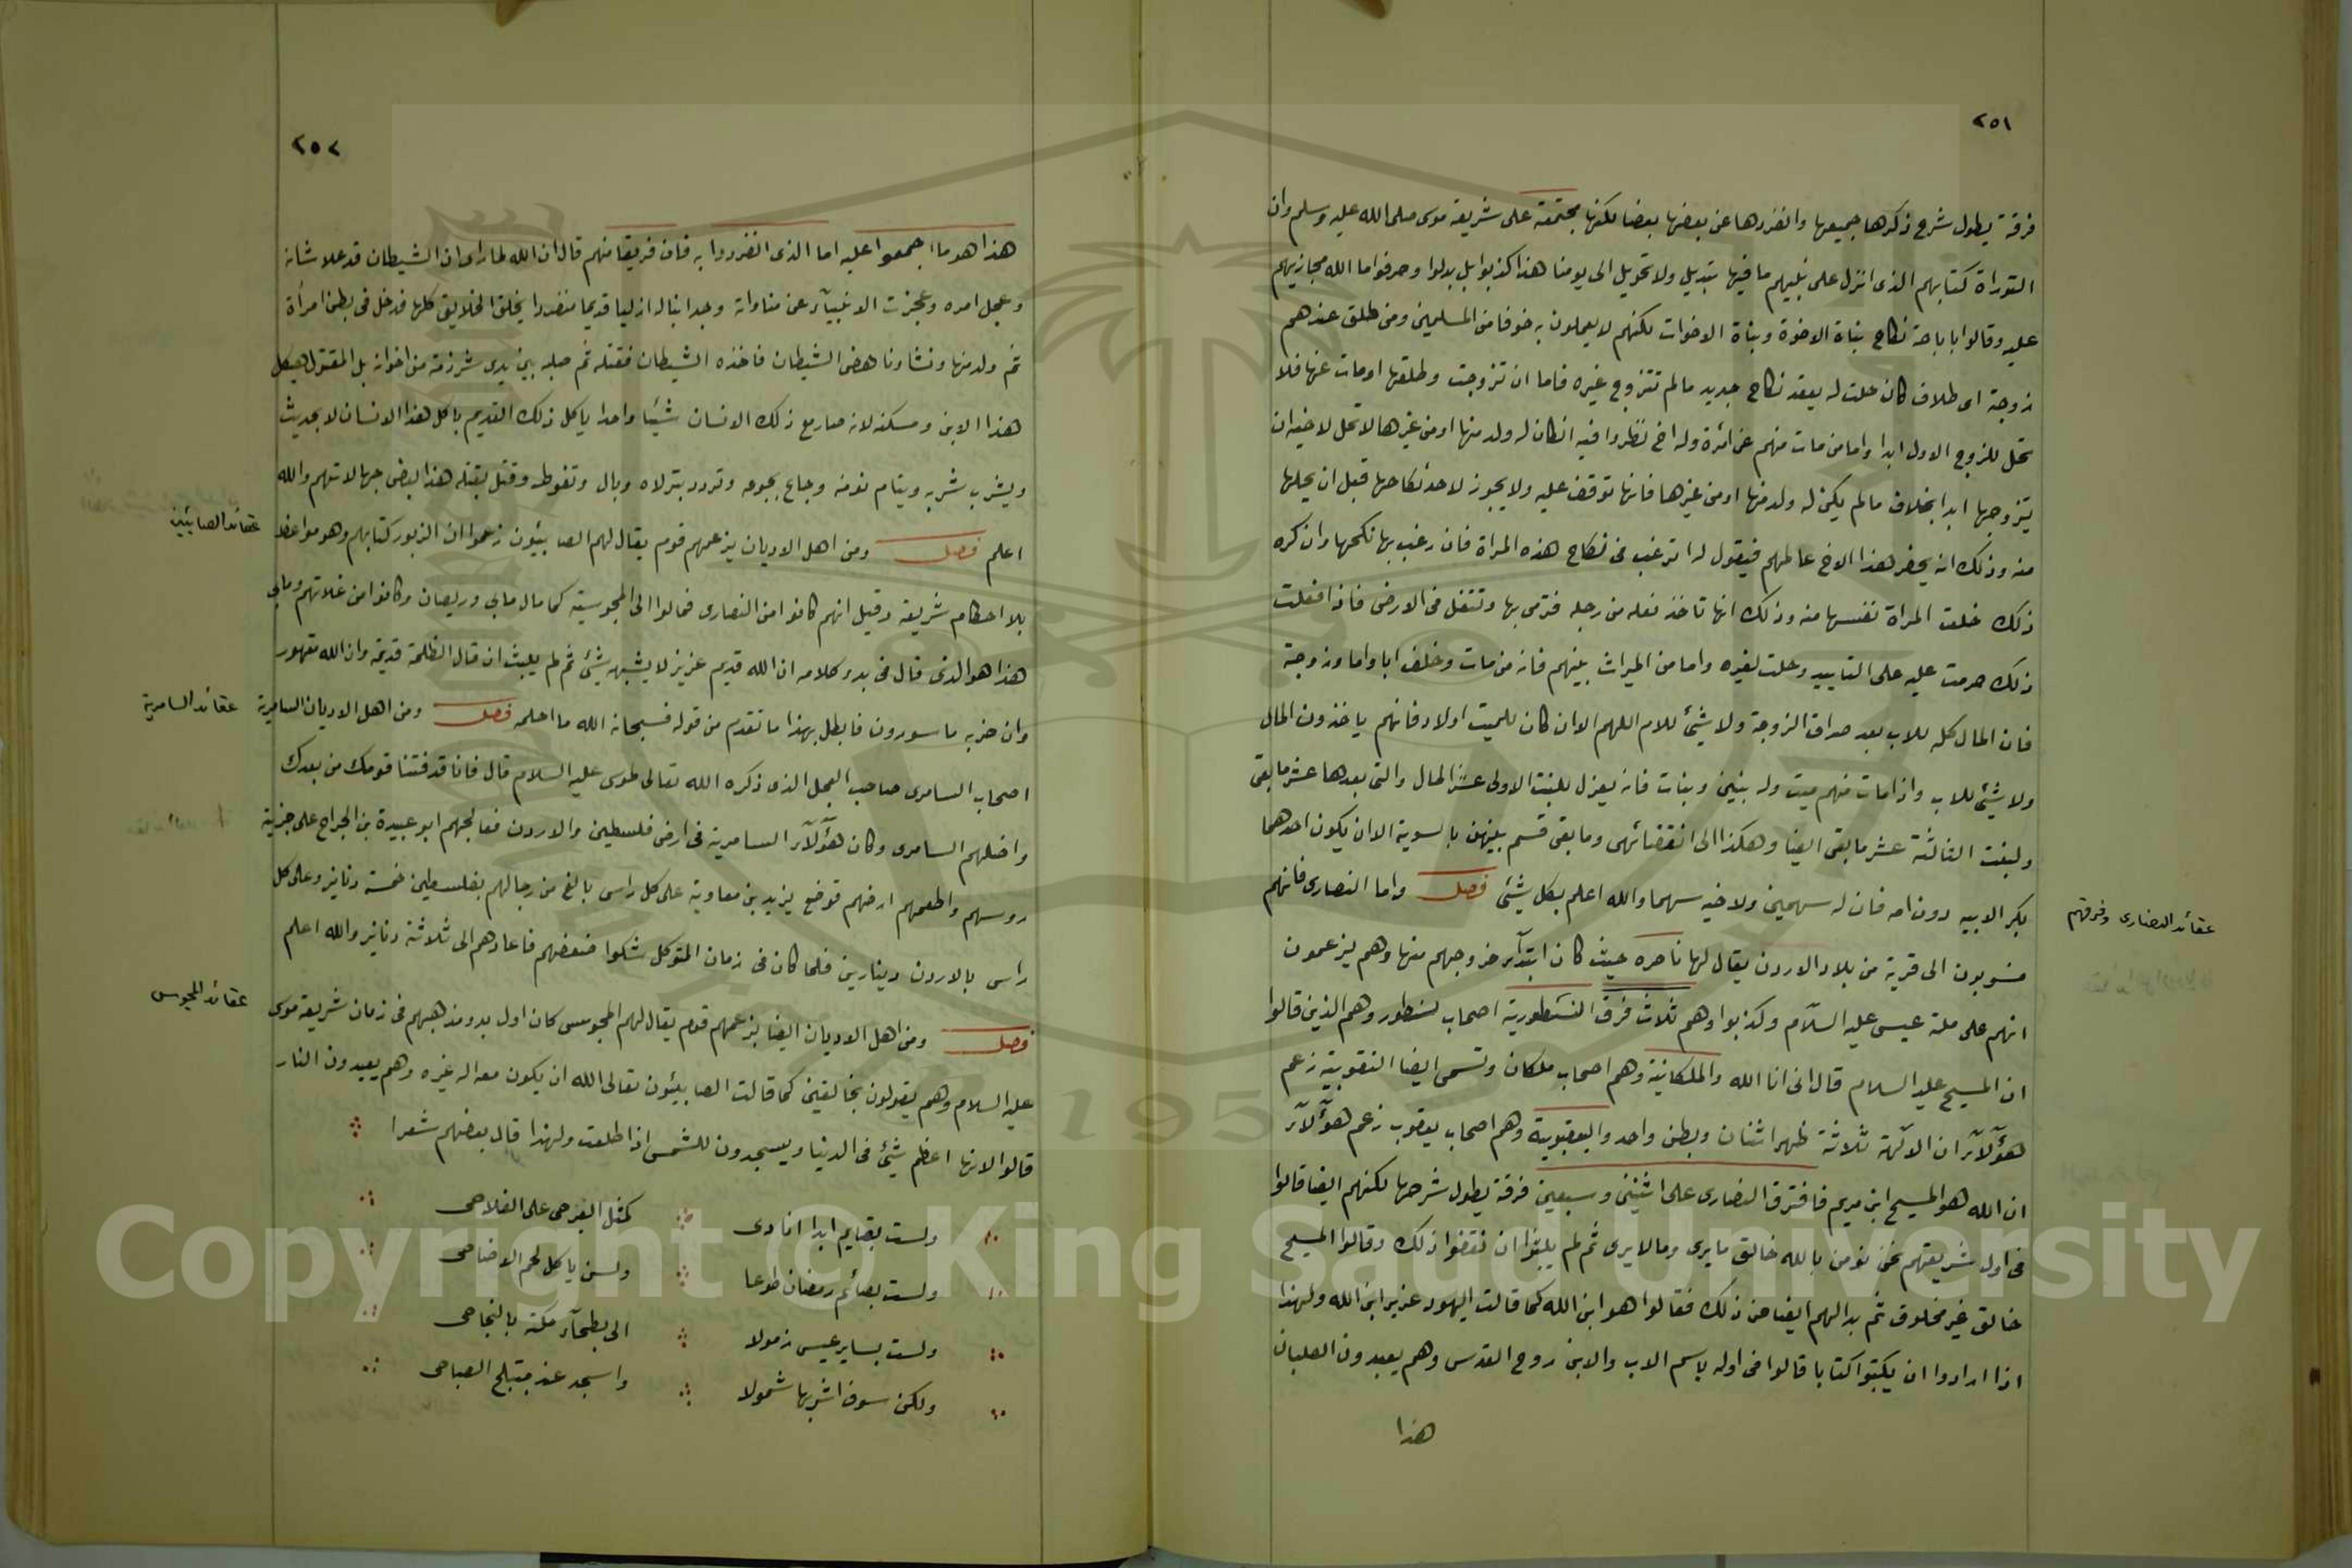 ٢٥١
فرقة يطول شرح ذكرها جميعها وانفردها عن بعضها بعضا لكنها مجتمعة على شريعة موسى صلى الله عليه وسلم وان
التوراة كتابهم الذى انزل على نبيهم ما فيها تبديل ولا تحويل الى يومنا هذا كذبوا بل بدلوا وحرفوا ما الله مجازيهم
عليه وقالوا باباحة نكاح بناة الاخوة وبناة الاخوات لكنهم لا يعملون به خوفا من المسلمين ومن طلق عندهم
زوجة اى طلاق كان حلت له بعقد نكاح جديد مالم تتزوج غيره فاما ان تزوجت وطلقها اومات عنها فلا
تحل للزوج الاول ابدا واما من مات منهم عن امرٔة وله اخ نظروا فيه انكان له ولد منها اومن غيرها لا تحل لاخيه ان
يتزوجها ابدا بخلاف مالم يكن له ولد منها اومن غيرها فانها توقف عليه ولا يجوز لاحد نكاحها قبل ان يحلها
منه وذلك انه يحضر هذا الاخ عالمهم فيقول له اترغب فى نكاح هذه المراة فان رغب بها نكحها وان كره
ذلك خلعت المراة نفسها منه وذلك انها تاخذ نعله من رجله فترمى بها وتتفل فى الارض فاذا فعلت
ذلك حرمت عليه على التابيد وحلت لغيره واما من الميراث بينهم فانه من مات وخلف ابا واما وزوجة
فان المال كله للاب بعد صداق الزوجة ولا شئ للام اللهم الا ان كان للميت اولاد فانهم ياخذون المال
ولا شئ للاب واذا مات منهم ميت وله بنين وبنات فانه يعزل للبنت الاولى عشر المال والتى بعدها عشر ما بقى
ولبنت الثالثة عشر ما بقى ايضا وهكذا الى انقضائهى وما بقى قسم بينهن بالسوية الا ان يكون احدهما
بكر الابيه دون امه فان له سهمين ولاخيه سهما والله اعلم بكل شئ فصل واما النصارى فانهم
عقائد النصارى وفرقهم
منسوبون الى قرية من بلاد الاردن يقال لها ناصره حيث كان ابتدآء خروجهم منها وهم يزعمون
انهم على ملة عيسى عليه السلآم وكذبوا وهم ثلاث فرق النسطورية اصحاب نسطور وهم الذين قالوا
ان المسيح عليه السلام قال انى انا الله والملكانية وهم اصحاب ملكان وتسمى ايضا النقوبية زعم
هؤٓلآء ان الالٓهة ثلاثة ظهر اثنان وبطن واحد واليعقوبية وهم اصحاب يعقوب زعم هؤٓلآء
ان الله هو المسيح ابن مريم فافترق النصارى على اثنتى وسبعين فرقة يطول شرحها لكنهم ايضا قالوا
فى اول شريعتهم نحن نومن بالله خالق ما يرى وما لا يرى ثم لم يلبثوا ان نقضوا ذلك وقالوا المسيح
خالق غير مخلوق ثم بدا لهم ايضا من ذلك فقالوا هو ابن الله كما قالت اليهود عزير ابن الله ولهذا
اذا ارادوا ان يكتبوا كتابا قالوا فى اوله باسم الاب والابن روح القدس وهم يعبدون الصلبان
هذا
٢٥٢
هذا هو ما اجمعوا عليه اما الذى انفردوا به فان فريقا منهم قال ان الله لما راى ان الشيطان قد علا شانه
وعجل امره وعجزت الانبيآء عن مناواته وجد ابنا له ازليا قديما منفردا بخلق الخلايق كلها فدخل فى بطن امرأة
ثم ولد منها ونشا وناهض الشيطان فاخذه الشيطان فقتله ثم صلبه بين يدى شرذمة من اخوانه بل المقتول هيكل
هذا الابن ومسكنه لانه صار مع ذلك الانسان شيئا واحدا ياكل ذلك القديم باكل هذا الانسان لا بحديث
ويشرب بشربه وينام نومه وجاع بجوعه وبال وتغوط وقتل بقتله هذا بعض جهالاتهم والله
اعلم فصل ومن اهل الاديان بزعمهم قوم يقال لهم الصابئون زعموا ان الزبور كتابهم وهو مواعظ
عقائد الصابئين
بلا احكام شريعة وقيل انهم كانوا من النصارى فمالوا الى المجوسية كما مال مانى وريصان وكانوا من غلاتهم ومانى
هذا هو الذى قال فى بدء كلامه ان الله قديم عزيز لا يشبهه شئ ثم لم يلبث ان قال الظلمة قديمة وان الله مقهور
وان حزبه ماسورون فابطل بهذا ما تقدم من قوله فسبحانه الله ما احلمه فصل ومن اهل الاديان السامرية
عقائد السامرية
اصحاب السامرى صاحب العجل الذى ذكره الله تعالى لموسى عليه السلام قال فانا قد فتنا قومك من بعدك
واضلهم السامرى وكان هؤٓلآء السامرية فى ارض فلسطين والاردن فعالجهم ابو عبيدة بن الجراح على جزية
روسهم واطعمهم ارضهم فوضع يزيد بن معاوية على كل راس بالغ من رجالهم بفلسطين خمسة دنانير وعلى كل
راس بالاردن دينارين فلما كان فى زمان المتوكل شكوا ضعفهم فاعادهم الى ثلاثة دنانير والله اعلم
فصل ومن اهل الاديان ايضا بزعمهم قوم يقال لهم المجوس كان اول بدو مذهبهم فى زمان شريعة موسى
عقائد المجوس
عليه السلام وهم يقولون بخالقين كما قالت الصابيئون تعالى الله ان يكون معه اله غيره وهم يعبدون النار
قالوا لانها اعظم شئ فى الدنيا ويسجدون للشمس اذا طلعت ولهذا قال بعضهم شعرا
ولست بقايم ابدا انادى كمثل العير حى على الفلاحى
ولست بصائم رمضان طوعا ولست ياكل لحم الاضاحى
ولست بساير عيس زمولا الى بطحآء مكة بالنجاحى
ولكن سوف اشربها شمولا واسجد عند مبتلج الصباحى
Copyright © King Saud University
195